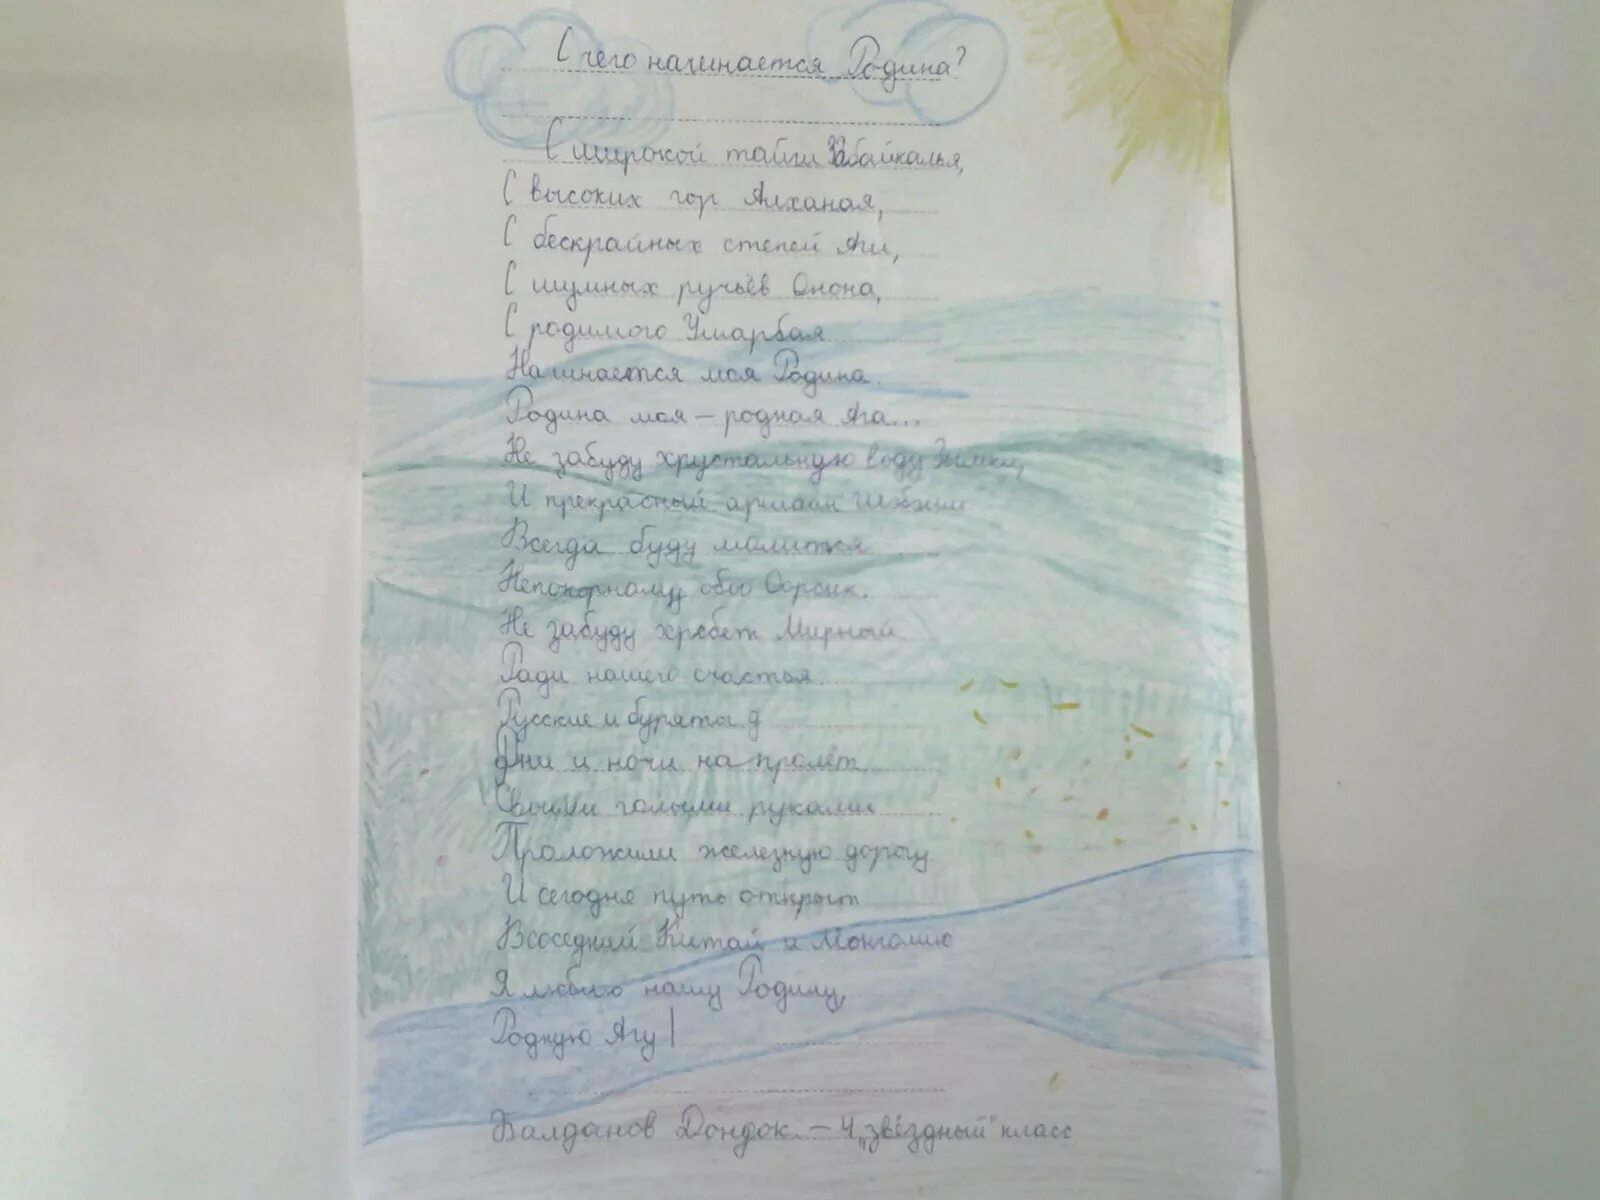 С чего начинается Родина?
С широкой тайги Забайкалья,
С высоких гор Алханая,
С бескрайных степей Аги,
С шумных ручьёв Онона,
С родимого Умарбая
Начинается моя Родина.
Родина моя – родная Ага...
Не забуду хрустальную воду Зымки,
И прекрасный аршаан
Всегда буду молиться
Непокорному обоо
Не забуду хребет Мирный
Ради нашего счастья.
Русские и буряты д
Дни и ночи на пролёт
Своими голыми руками
Проложили железную дорогу.
И сегодня путь открыт
В соседний Китай и Монголию
Я люблю нашу Родину,
Родную Агу!
Балданов Дондок. – 4 „звёздный" класс